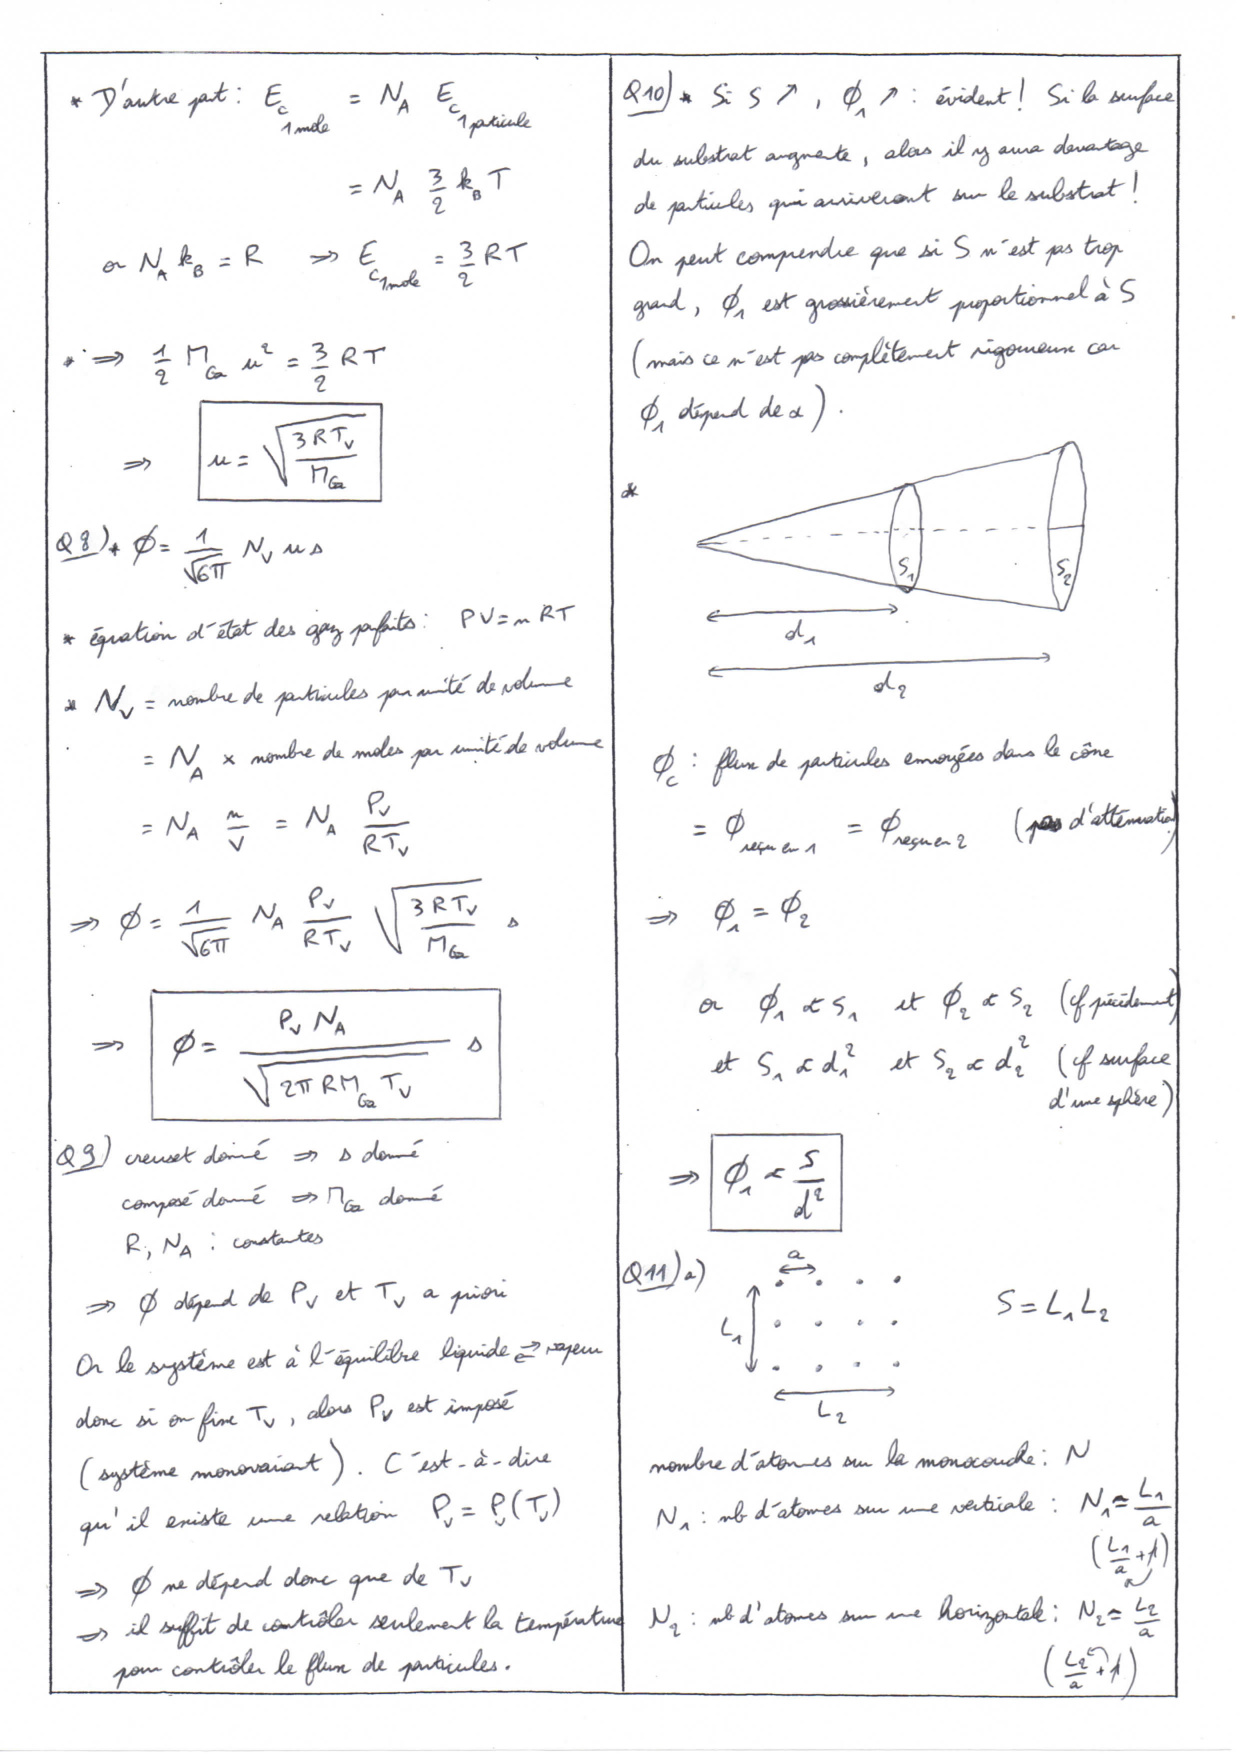 * D'autre part : E_c 1 mole = N_A E_c 1 particule
= N_A 3/2 k_B T
or N_A k_B = R ⇒ E_c 1 mole = 3/2 RT
* ⇒ 1/2 M_Ga u² = 3/2 RT
⇒ u = √(3RT_V / M_Ga)
Q8) * φ = 1/√(6π) N_V u s
* équation d'état des gaz parfaits : PV = nRT
* N_V = nombre de particules par unité de volume
= N_A × nombre de moles par unité de volume
= N_A n/V = N_A P_V/(RT_V)
⇒ φ = 1/√(6π) N_A P_V/(RT_V) √(3RT_V / M_Ga) s
⇒ φ = P_V N_A / √(2π R M_Ga T_V) s
Q9) creuset donné ⇒ s donné
composé donné ⇒ M_Ga donné
R, N_A : constantes
⇒ φ dépend de P_V et T_V a priori
Or le système est à l'équilibre liquide ⇌ vapeur
donc si on fixe T_V, alors P_V est imposé
(système monovariant). C'est-à-dire
qu'il existe une relation P_V = P_V(T_V)
⇒ φ ne dépend donc que de T_V
⇒ il suffit de contrôler seulement la température
pour contrôler le flux de particules.
Q10) * Si S ↗, φ_1 ↗ : évident ! Si la surface
du substrat augmente, alors il y aura davantage
de particules qui arriveront sur le substrat !
On peut comprendre que si S n'est pas trop
grand, φ_1 est grossièrement proportionnel à S
(mais ce n'est pas complètement rigoureux car
φ_1 dépend de α).
*
S_1
S_2
d_1
d_2
φ_c : flux de particules envoyées dans le cône
= φ reçu en 1 = φ reçu en 2 (pas d'atténuation)
⇒ φ_1 = φ_2
or φ_1 ∝ S_1 et φ_2 ∝ S_2 (cf précédement)
et S_1 ∝ d_1² et S_2 ∝ d_2² (cf surface
d'une sphère)
⇒ φ_1 ∝ S/d²
Q11) a)
a
L_1
S = L_1 L_2
L_2
nombre d'atomes sur la monocouche : N
N_1 : nb d'atomes sur une verticale : N_1 ≃ L_1/a
(L_1/a + 1)
N_2 : nb d'atomes sur une horizontale : N_2 ≃ L_2/a
(L_2/a + 1)